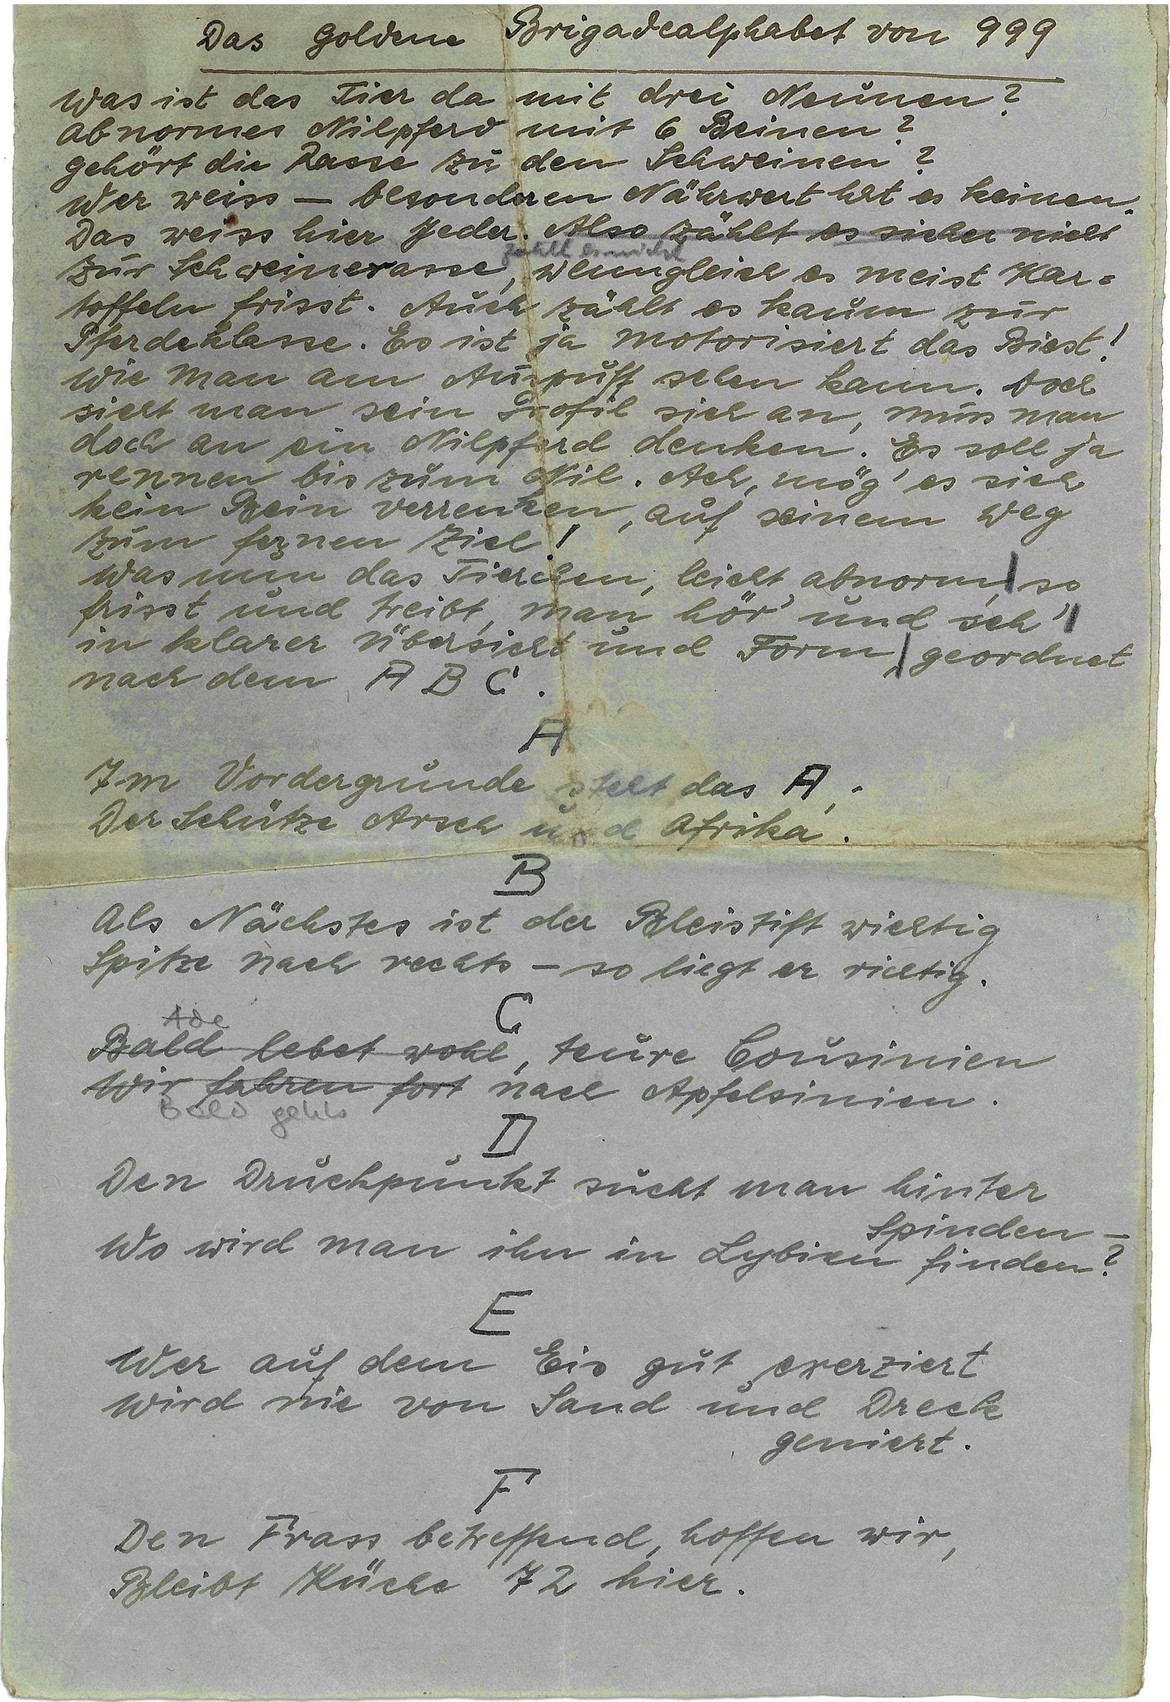 Das Goldene Brigadealphabet von 999
Was ist das Tier da mit drei Neunen?
Abnormes Nilpferd mit 6 Beinen?
gehört die Rasse zu den Schweinen?
Wer weiss — besonderen Nährwert hat es keinen.
Das weiss hier Jeder. Also zählt es sicher nicht
zählt es nicht
zur Schweinerasse, wenngleich es meist Kar=
toffeln frisst. Auch zählt es kaum zur
Pferdeklasse. Es ist ja motorisiert das Biest!
Wie man am Auspuff sehen kann. Doch
sieht man sein Profil sich an, muss man
doch an ein Nilpferd denken. Es soll ja
rennen bis zum Nil. Ach, mög' es sich
kein Bein verrenken, auf seinem Weg
zum fernen Ziel!
Was nun das Tierchen, leicht abnorm, so
frisst und treibt, man hör' und seh'
in klarer Übersicht und Form, geordnet
nach dem A B C.
A
Im Vordergrunde steht das A,
Der Schütze Arsch und Afrika.
B
Als Nächstes ist der Bleistift wichtig
Spitze nach rechts – so liegt er richtig.
C
Ade
Bald lebet wohl, teure Cousinien
Wir fahren fort nach Apfelsinien.
Bald gehts
D
Den Druckpunkt sucht man hinter
Spinden –
Wo wird man ihn in Lybien finden?
E
Wer auf dem Eis gut exerziert
Wird nie von Sand und Dreck
geniert.
F
Den Frass betreffend, hoffen wir,
Bleibt Küche 72 hier.